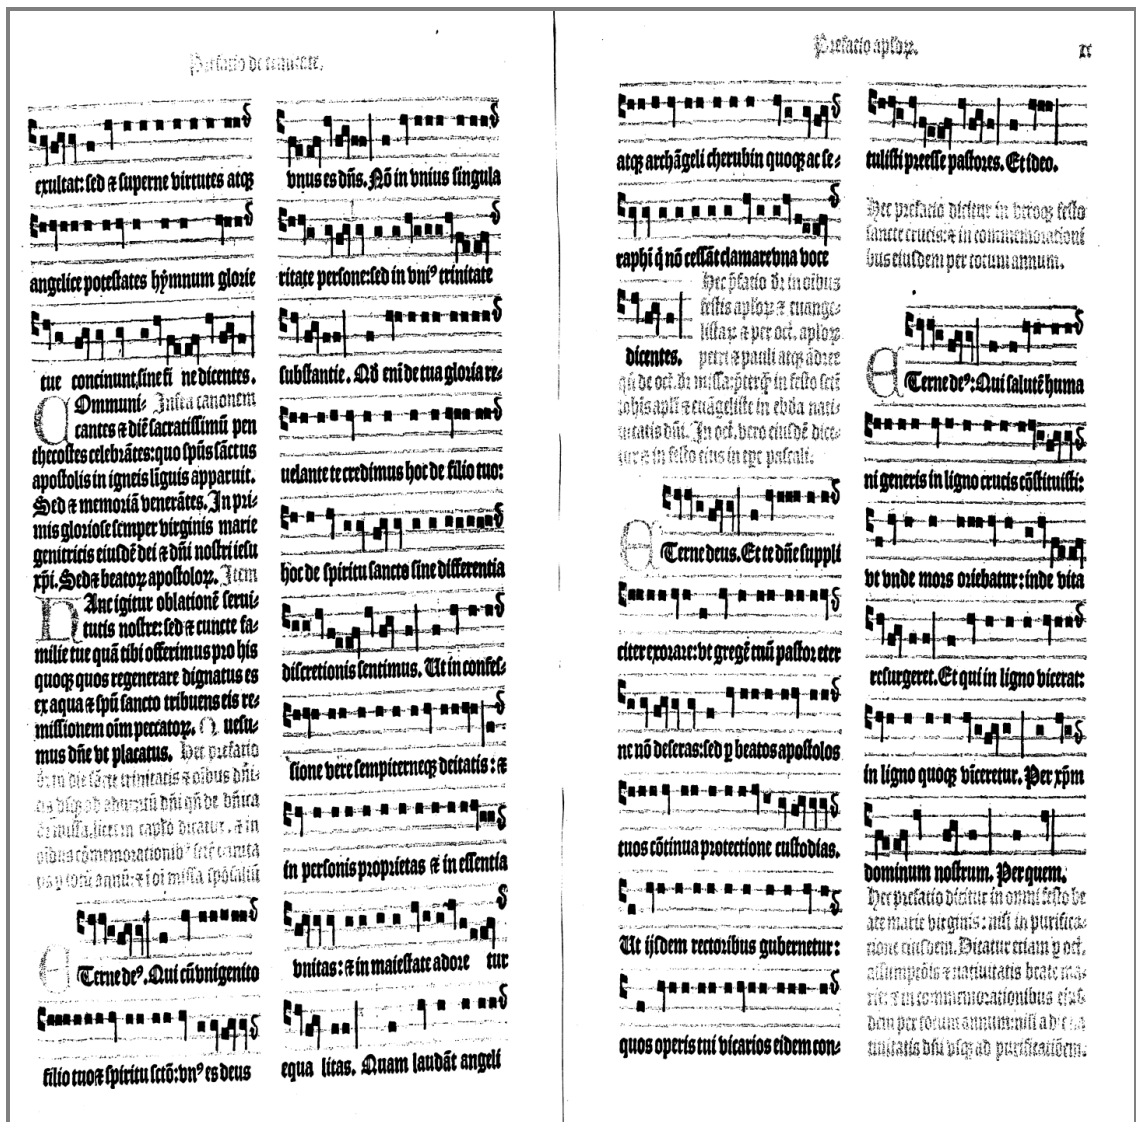 Prefatio de trinitate.
exultat: sed ⁊ superne virtutes atqꝫ
angelice potestates hymnum glorie
tue concinunt, sine fi ne dicentes.
COmmuni⸗ Infra canonem
cantes ⁊ diē sacratissimū pen
thecostes celebrātes: quo spūs sāctus
apostolis in igneis līguis apparuit.
Sed ⁊ memoriā venerātes. In pri⸗
mis gloriose semper virginis marie
genitricis eiusdē dei ⁊ dn̄i nostri iesu
xp̄i. Sed ⁊ beatoꝝ apostoloꝝ. Item
HAnc igitur oblationē serui⸗
tutis nostre: sed ⁊ cuncte fa⸗
milie tue quā tibi offerimus pro his
quoqꝫ quos regenerare dignatus es
ex aqua ⁊ spū sancto tribuens eis re⸗
missionem oīm peccatoꝝ. Quesu⸗
mus dn̄e vt placatus. Hec prefatio
ETerne deꝰ. Qui cū vnigenito
filio tuo ⁊ spiritu sctō: vnꝰ es deus
vnus es dn̄s. Nō in vnius singula
ritate persone: sed in vniꝰ trinitate
substantie. Qd̄ eni de tua gloria re⸗
uelante te credimus hoc de filio tuo:
hoc de spiritu sancto sine differentia
discretionis sentimus. Ut in confes⸗
sione vere sempiterneqꝫ deitatis: ⁊
in personis proprietas ⁊ in essentia
vnitas: ⁊ in maiestate adore tur
equa litas. Quam laudāt angeli
Prefatio apl̄oꝝ.
atqꝫ archāgeli cherubin quoqꝫ ac se⸗
raphi q̄ nō cessāt clamare vna voce
Hec p̄fatio dr̄ in oībus
festis apl̄oꝝ ⁊ euange⸗
listaꝝ ⁊ per oct. apl̄oꝝ
dicentes. petri ⁊ pauli atqꝫ ādree
ETerne deus. Et te dn̄e suppli
citer exorare: vt gregē tuū pastor eter
ne nō deseras: sed p beatos apostolos
tuos cōtinua protectione custodias.
Ut ijsdem rectoribus gubernetur:
quos operis tui vicarios eidem con⸗
tulisti preesse pastores. Et ideo.
Hec prefatio dicitur in vtroqꝫ festo
sancte crucis: ⁊ in commemorationi
bus eiusdem per totum annum.
ETerne deꝰ: Qui salutē huma
ni generis in ligno crucis cōstituisti:
vt vnde mors oriebatur: inde vita
resurgeret. Et qui in ligno vicerat:
in ligno quoqꝫ vinceretur. Per xp̄m
dominum nostrum. Per quem.
Hec prefatio dicitur in omni festo be
ate marie virginis: nisi in purifica⸗
tione eiusdem. Dicatur etiam p oct.
assumptōis ⁊ natiuitatis beate ma⸗
rie: ⁊ in commemorationibus eius⸗
dem per totum annum: nisi ab